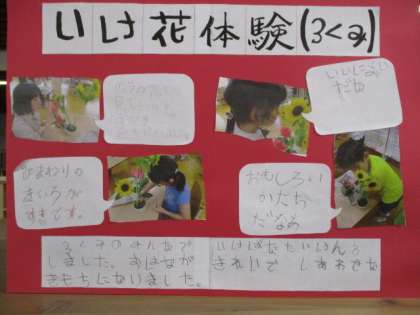 いけ花体験(3くみ)
いいにおい
だね
ひまわりの
きいろが
すきです。
おもしろい
かたち
だなあ
3くみのみんなで
いけばなたいけんを
しました。おはなが
きれいで しあわせな
きもちになりました。